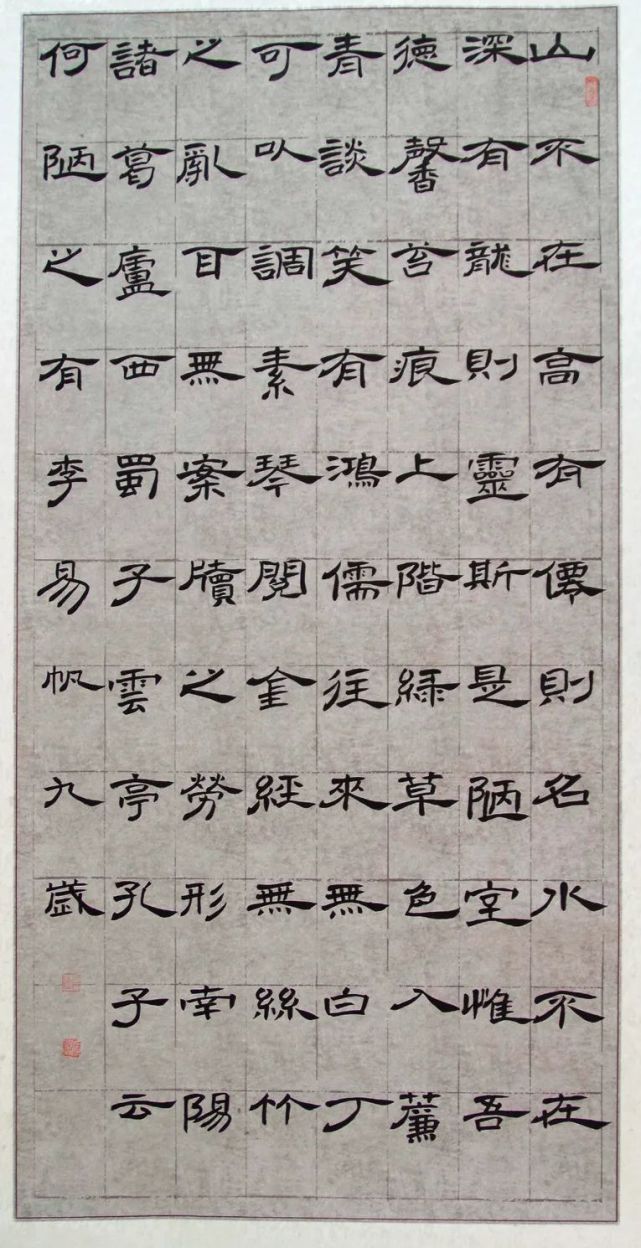 山不在高有僊則名水不在
深有龍則靈斯是陋室惟吾
德馨苔痕上階緑草色入簾
青談笑有鴻儒往來無白丁
可以調素琴閱金經無絲竹
之亂耳無案牘之勞形南陽
諸葛廬西蜀子雲亭孔子云
何陋之有李易帆九歲